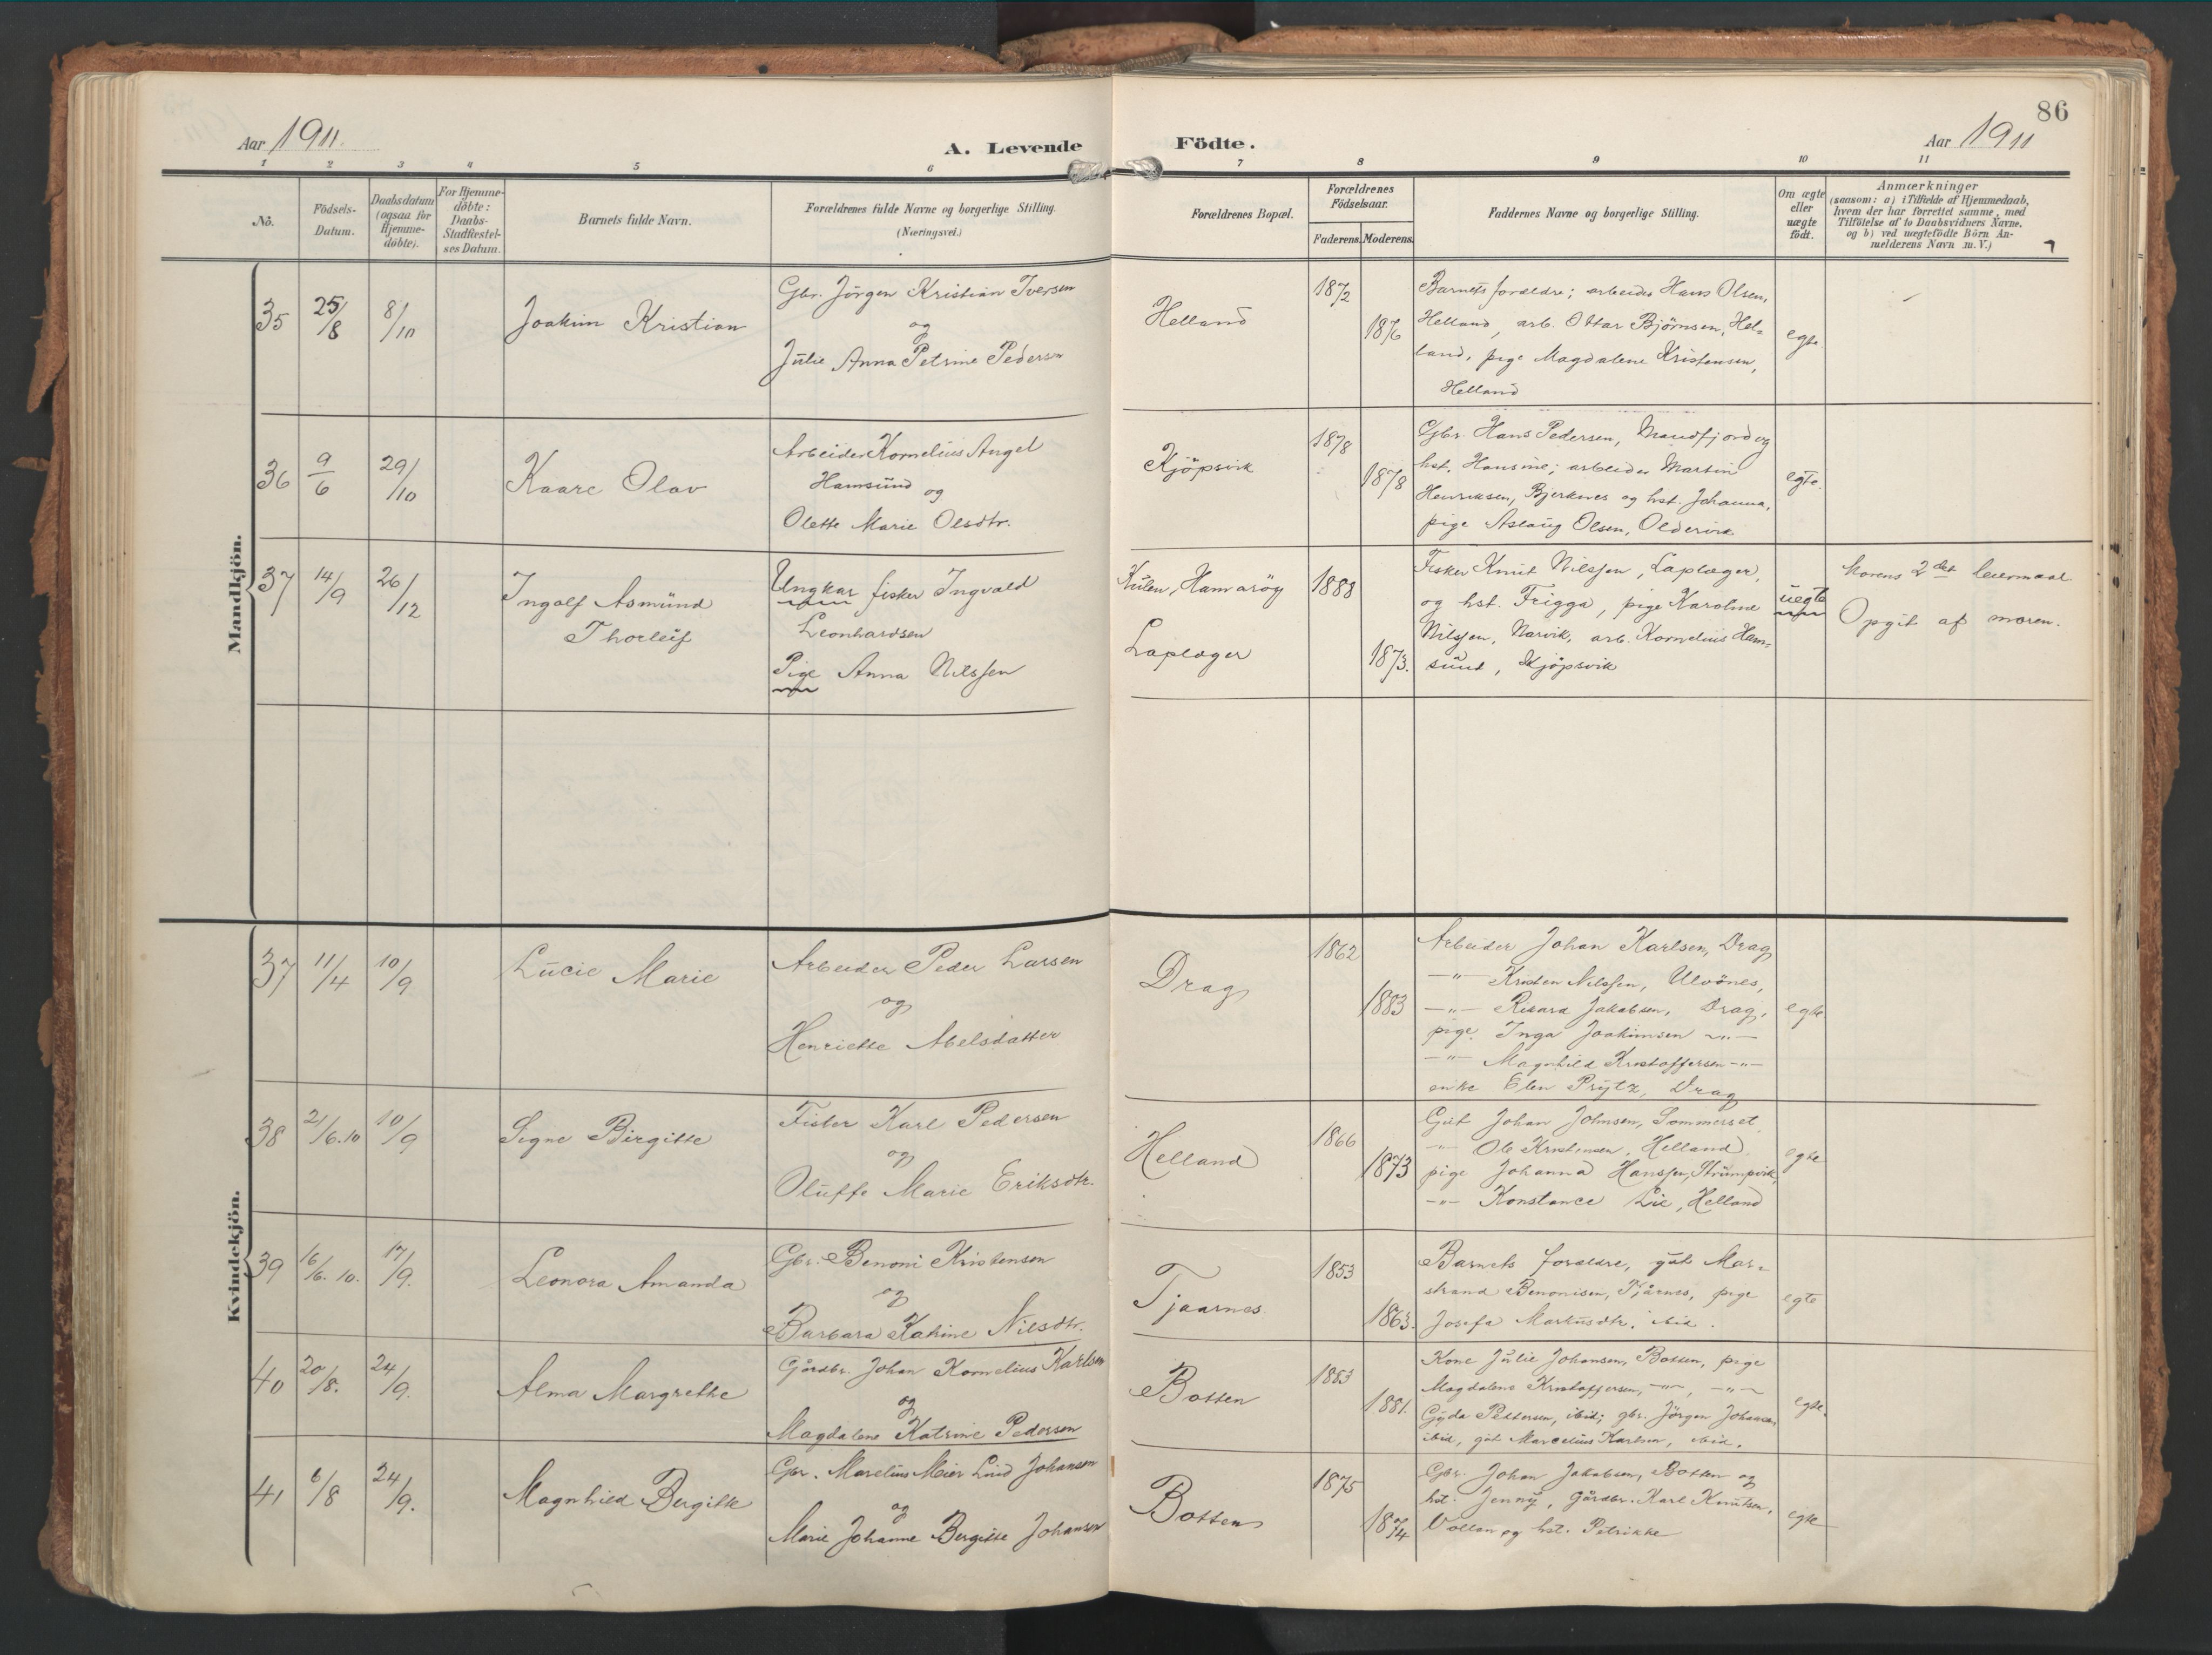 86
Aar 1911.
A. Levende
Födte.
Aar 1911
1 2 3 4 5 6 7 8 9 10 11
No.
Födsels-
Datum.
Daabsdatum
(ogsaa for
Hjemme-
döbte).
For Hjemme-
döbte:
Daabs-
Stadfestel-
ses Datum.
Barnets fulde Navn.
Forældrenes fulde Navne og borgerlige Stilling.
(Næringsvei.)
Forældrenes Bopæl.
Forældrenes
Födselsaar.
Faderens. Moderens.
Faddernes Navne og borgerlige Stilling.
Om ægte
eller
uægte
födt.
Anmærkninger
(saasom: a) i Tilfælde af Hjemmedaab,
hvem der har forrettet samme, med
Tilföielse af to Daabsvidners Navne.
og b) ved uægtefödte Börn An-
melderens Navn m. V.)
Mandkjön.
35
25/8
8/10
Joakim Kristian
Gbr. Jörgen Kristian Iversen
og
Julie Anna Petrine Pedersen
Helland
1872
1876
Barnets forældre; arbeider Hans Olsen,
Helland, arb. Ottar Björnsen, Hel-
land, pige Magdalene Kristensen,
Helland
egte.
36
9/6
29/10
Kaare Olav
Arbeider Kornelius Angel
Hamsund og
Olette Marie Olsdtr.
Kjöpsvik
1878
1878
Gbr. Hans Pedersen, Mandfjord og
hst. Hansine; arbeider Martin
Henriksen, Bjerknes og hst. Johanna,
pige Aslaug Olsen, Oldervik
egte.
37
14/9
26/12
Ingolf Asmund
Thorleif
Ungkar fisker Ingvald
Leonhardsen
Pige Anna Nilssen
Kulen, Hamaröy
Laplæger
1888
1873.
Fisker Knut Nilssen, Laplæger,
og hst. Frigga, pige Karoline
Nilssen, Narvik, arb. Kornelius Ham-
sund, Kjöpsvik
uegte
Morens 2det leiermaal
Opgit af moren.
Kvindekjön.
37
11/4
10/9
Lucie Marie
Arbeider Peder Larsen
og
Henriette Abelsdatter
Drag
1862
1883
Arbeider Johan Karlsen, Drag
-"- Kristen Nilssen, Ulvönes,
-"- Rikard Jakobsen, Drag,
pige Inga Joakimsen -"-
-"- Magnhild Kristoffersen -"-
enke Elen Prytz, Drag
egte.
38
21/6.10
10/9
Signe Birgitte
Fisker Karl Pedersen
og
Oluffe Marie Eriksdtr.
Helland
1866
1873
Gut Johan Johnsen, Sommerset,
-"- Ole Kristensen, Helland
pige Johanna Hanssen, Strumpvik,
-"- Konstance Lie, Helland
egte
39
16/6.10.
17/9.
Leonora Amanda
Gbr. Benoni Kristensen
og
Barbara Katrine Nilsdtr.
Tjaarnes.
1853
1863.
Barnets forældre, gut Mar-
strand Benonisen, Tjårnes, pige
Josefa Markusdtr. ibid.
egte
40
20/8.
24/9.
Alma Margrethe
Gårdbr. Johan Kornelius Karlsen
og
Magdalene Katrine Pedersen
Botten
1883
1881.
Kone Julie Johansen, Botten, pige
Magdalene Kristoffersen, -"-, -"-
Gyda Pettersen, ibid; gbr. Jörgen Johansen,
ibid, gut Marcelius Karlsen, ibid.
egte.
41
6/8
24/9.
Magnhild Bergitte
Gbr. Marelius Meier Lind Johansen
og
Marie Johanne Bergitte Johansen
Botten
1875
1874
Gbr. Johan Jakobsen, Botten og
hst. Jenny, Gårdbr. Karl Knutsen,
Vollan og hst. Petrikke
egte